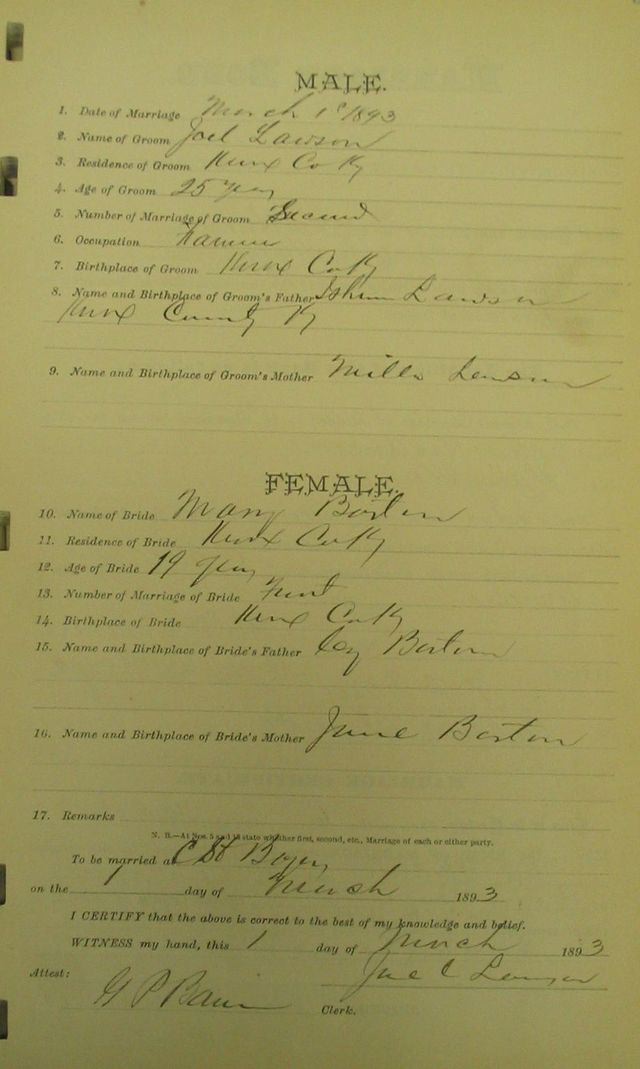 MALE.
1. Date of Marriage March 1st 1893
2. Name of Groom Joel Lawson
3. Residence of Groom Knox Co Ky
4. Age of Groom 25 years
5. Number of Marriage of Groom Second
6. Occupation Farmer
7. Birthplace of Groom Knox Co Ky
8. Name and Birthplace of Groom's Father Lawson
Knox County Ky
9. Name and Birthplace of Groom's Mother Lawson
FEMALE.
10. Name of Bride Mary
11. Residence of Bride Knox Co Ky
12. Age of Bride 19 years
13. Number of Marriage of Bride First
14. Birthplace of Bride Knox Co Ky
15. Name and Birthplace of Bride's Father
16. Name and Birthplace of Bride's Mother
17. Remarks
N. B.—At Nos. 5 and 13 state whether first, second, etc., Marriage of each or either party.
To be married at
on the 1 day of March 1893
I CERTIFY that the above is correct to the best of my knowledge and belief.
WITNESS my hand, this 1 day of March 1893
Attest:
Clerk.